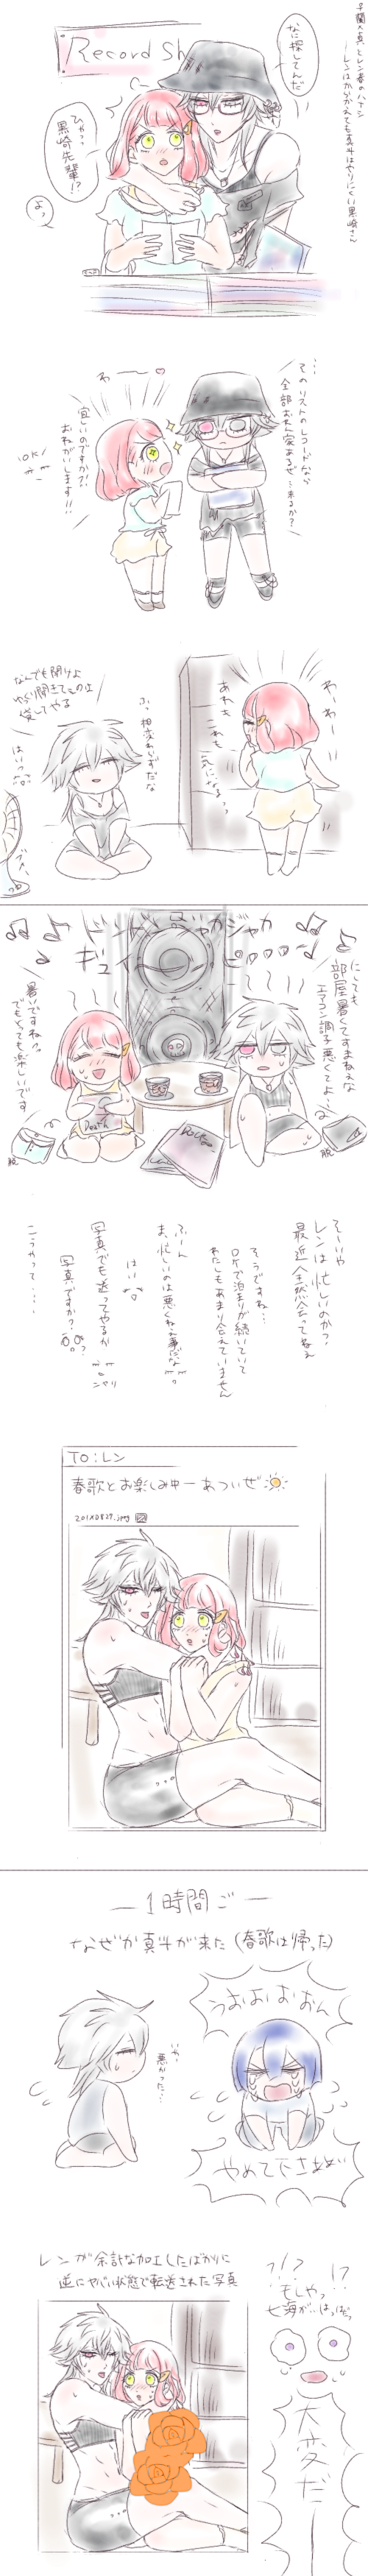 Record Sh
なに探してんだ
ひゃっ
黒崎先輩!?
よっ
そのリストのレコードなら
全部おれん家あるぜ…来るか?
わー
宜しいのですか!?
おねがいします!!
OK!
わわー
あれも
これも
気になるっ
ふっ相変わらずだな
なんでも聞けよ
ゆっくり聞きてぇのは
貸してやる
はいっ
にしても
部屋暑くてすまねぇな
エアコン調子悪くてよぅ
暑いですねっ
でもとっても楽しいです
Death
脱
脱
そーいや
レンは忙しいのか?
最近全然会ってねぇ
そうですね…
ロケで泊まりが続いていて
わたしもあまり会えていません
ふーん
ま、忙しいのは悪くねぇ事だな
はい
写真でも送ってやるか
ニヤリ
写真ですか?
こうやって……
To:レン
春歌とお楽しみ中ーあついぜ
ー1時間ごー
なぜか真斗が来た(春歌は帰った)
うおおおおん
いや…
悪かった…
レンが余計な加工したばかりに
逆にヤバい状態で転送された写真
!?
もしやっ
七海が…はっぱだっ
大変だ